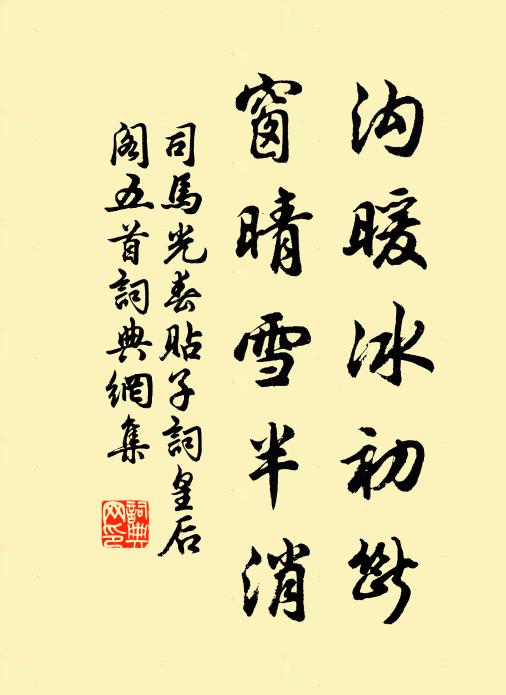 沟暖冰初断
窗晴雪半消
司馬光春貼子詞皇后
閣五首詞典網集
詞典
网印